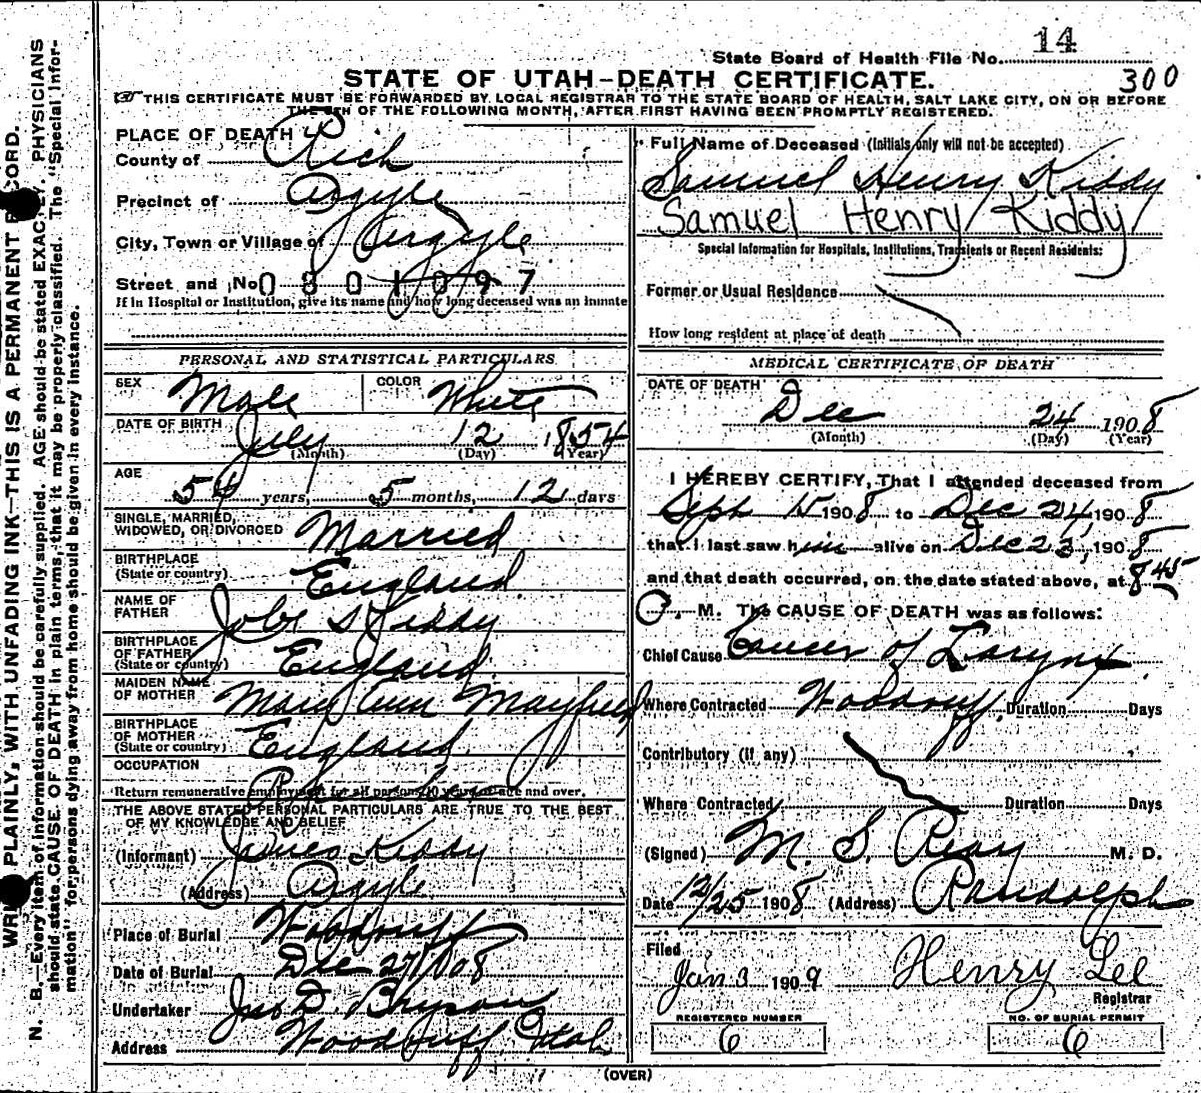 14
State Board of Health File No.
300
STATE OF UTAH—DEATH CERTIFICATE.
THIS CERTIFICATE MUST BE FORWARDED BY LOCAL REGISTRAR TO THE STATE BOARD OF HEALTH, SALT LAKE CITY, ON OR BEFORE
THE 5TH OF THE FOLLOWING MONTH, AFTER FIRST HAVING BEEN PROMPTLY REGISTERED.
PLACE OF DEATH
County of Rich
Precinct of Argyle
City, Town or Village of Argyle
Street and No. 0801097
If in Hospital or Institution, give its name and how long deceased was an inmate
Full Name of Deceased (Initials only will not be accepted)
Samuel Henry Kiddy
Samuel Henry Kiddy
Special Information for Hospitals, Institutions, Transients or Recent Residents:
Former or Usual Residence
How long resident at place of death
PERSONAL AND STATISTICAL PARTICULARS
SEX Male COLOR White
DATE OF BIRTH July 12 1854
(Month) (Day) (Year)
AGE
54 years, 5 months, 12 days
SINGLE, MARRIED,
WIDOWED, OR DIVORCED Married
BIRTHPLACE
(State or country) England
NAME OF
FATHER Kiddy
BIRTHPLACE
OF FATHER
(State or country) England
MAIDEN NAME
OF MOTHER Mary Ann Mayfield
BIRTHPLACE
OF MOTHER
(State or country) England
OCCUPATION
Return remunerative employment for all persons 10 years of age and over.
THE ABOVE STATED PERSONAL PARTICULARS ARE TRUE TO THE BEST
OF MY KNOWLEDGE AND BELIEF
(Informant) James Kiddy
(Address) Argyle
Place of Burial Woodruff
Date of Burial Dec 27/1908
Undertaker Jas D. Bryson
Address Woodruff, Utah
MEDICAL CERTIFICATE OF DEATH
DATE OF DEATH
Dec 24 1908
(Month) (Day) (Year)
I HEREBY CERTIFY, That I attended deceased from
Sept 15 1908 to Dec 24, 1908
that I last saw him alive on Dec 23, 1908
and that death occurred, on the date stated above, at 8 45
M. The CAUSE OF DEATH was as follows:
Chief Cause Cancer of Larynx
Where Contracted Woodruff. Duration Days
Contributory (if any)
Where Contracted Duration Days
(Signed) M. S. Reay M. D.
Date 12/25 1908 (Address) Randolph
Filed
Jan 3 1909 Henry Lee
Registrar
REGISTERED NUMBER
6
NO. OF BURIAL PERMIT
6
(OVER)
PLAINLY, WITH UNFADING INK—THIS IS A PERMANENT
N. B.—Every item of information should be carefully supplied. AGE should be stated EXACTLY. PHYSICIANS
should state CAUSE OF DEATH in plain terms, that it may be properly classified. The "Special Infor-
mation" for persons dying away from home should be given in every instance.